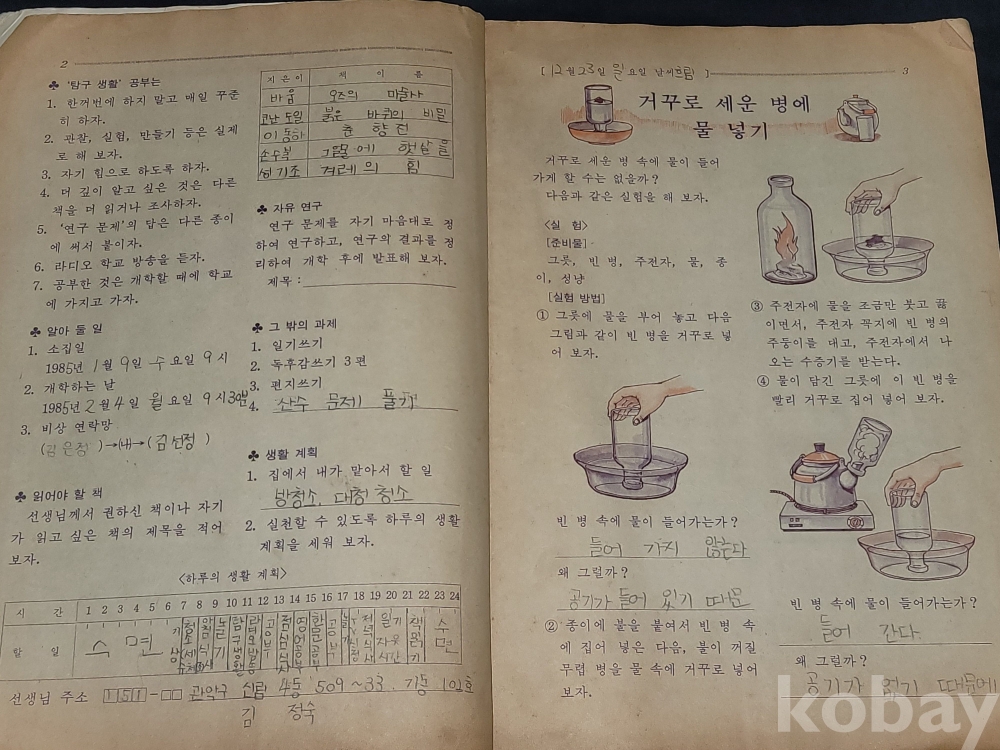 2
♣ '탐구 생활' 공부는
1. 한꺼번에 하지 말고 매일 꾸준
히 하자.
2. 관찰, 실험, 만들기 등은 실제
로 해 보자.
3. 자기 힘으로 하도록 하자.
4. 더 깊이 알고 싶은 것은 다른
책을 더 읽거나 조사하자.
5. '연구 문제'의 답은 다른 종이
에 써서 붙이자.
6. 라디오 학교 방송을 듣자.
7. 공부한 것은 개학할 때에 학교
에 가지고 가자.
♣ 알아 둘 일
1. 소집일
1985년 1월 9일 수요일 9시
2. 개학하는 날
1985년 2월 4일 월요일 9시 30분
3. 비상 연락망
(김은정)→(나)→(김선정)
♣ 읽어야 할 책
선생님께서 권하신 책이나 자기
가 읽고 싶은 책의 제목을 적어
보자.
지은이 책 이름
바움 오즈의 마술사
코난 도일 붉은 바퀴의 비밀
이동하 춘향전
손수복 그늘에 햇살을
성기조 겨레의 힘
♣ 자유 연구
연구 문제를 자기 마음대로 정
하여 연구하고, 연구의 결과를 정
리하여 개학 후에 발표해 보자.
제목:
♣ 그 밖의 과제
1. 일기쓰기
2. 독후감쓰기 3편
3. 편지쓰기
4. 산수 문제 풀기
♣ 생활 계획
1. 집에서 내가 맡아서 할 일
방청소, 대청 청소
2. 실천할 수 있도록 하루의 생활
계획을 세워 보자.
〈하루의 생활 계획〉
시 간 1 2 3 4 5 6 7 8 9 10 11 12 13 14 15 16 17 18 19 20 21 22 23 24
할 일 수면 기상 놀기 공부 점심식사 공부 저녁식사 일기 자유시간 책읽기 수면
선생님 주소 151-□□ 관악구 신림 4동 509~33. 기동 101호
김 정숙
[12월 23일 일요일 날씨 흐림] 3
거꾸로 세운 병에
물 넣기
거꾸로 세운 병 속에 물이 들어
가게 할 수는 없을까?
다음과 같은 실험을 해 보자.
〈실 험〉
[준비물]
그릇, 빈 병, 주전자, 물, 종
이, 성냥
[실험 방법]
① 그릇에 물을 부어 놓고 다음
그림과 같이 빈 병을 거꾸로 넣
어 보자.
빈 병 속에 물이 들어가는가?
들어 가지 않는다
왜 그럴까?
공기가 들어 있기 때문
② 종이에 불을 붙여서 빈 병 속
에 집어 넣은 다음, 불이 꺼질
무렵 병을 물 속에 거꾸로 넣어
보자.
③ 주전자에 물을 조금만 붓고 끓
이면서, 주전자 꼭지에 빈 병의
주둥이를 대고, 주전자에서 나
오는 수증기를 받는다.
④ 물이 담긴 그릇에 이 빈 병을
빨리 거꾸로 집어 넣어 보자.
빈 병 속에 물이 들어가는가?
들어 간다.
왜 그럴까?
공기가 없기 때문에
kobay